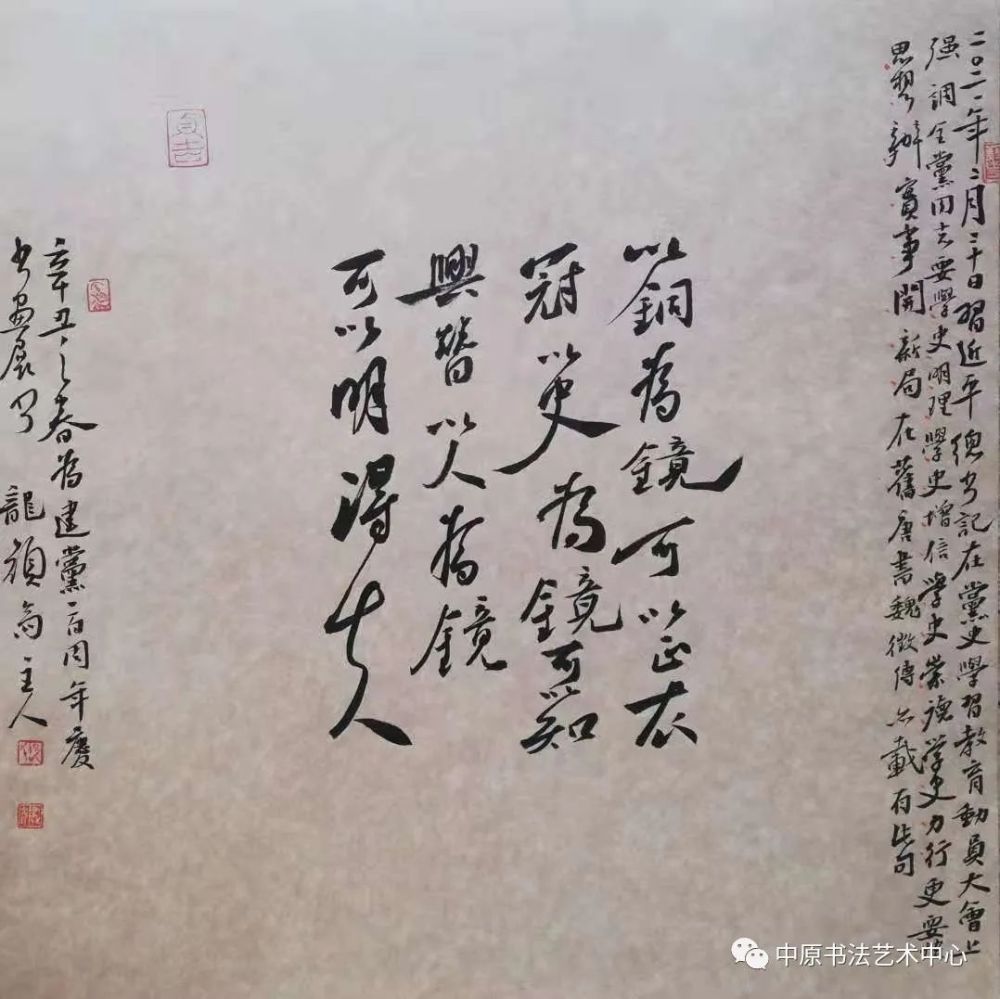 二〇二一年二月二十日習近平總书記在黨史學習教育動員大會上
强調全黨同志要學史明理學史增信學史崇德學史力行更要
思想辦實事開新局在舊唐書魏徵傳亦載有此句
以銅為鏡可以正衣
冠以史為鏡可以知
興替以人為鏡
可以明得失人
辛丑之春為建黨一百周年慶
书畫展写 龍頭高主人
中原书法艺术中心